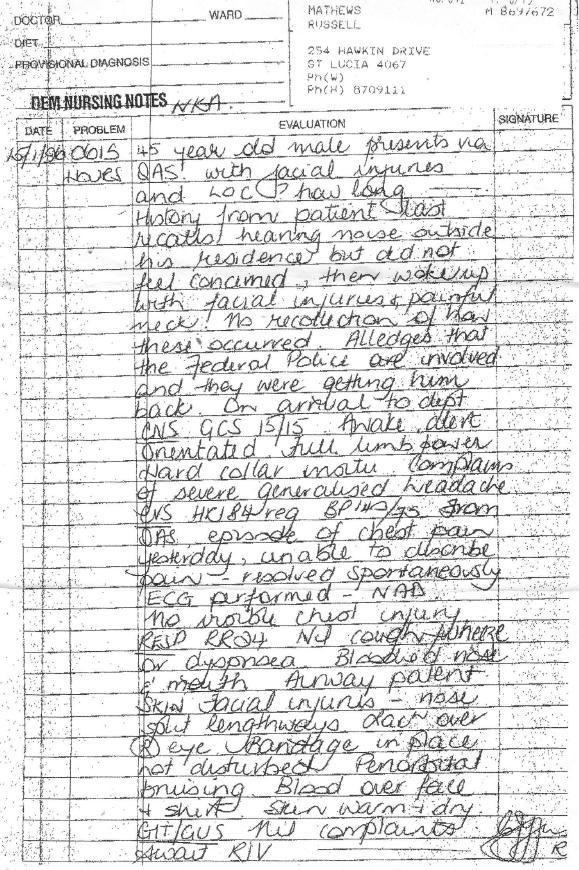 DOCTOR WARD
DIET
PROVISIONAL DIAGNOSIS
MATHEWS
RUSSELL
254 HAWKIN DRIVE
ST LUCIA 4067
Ph(W)
Ph(H) 8709111
DEM NURSING NOTES NKA.
DATE PROBLEM EVALUATION SIGNATURE
15/1/96 0615 45 year old male presents via
Hours QAS with facial injuries
and LOC ? how long
History from patient last
recalls hearing noise outside
his residence but did not
feel concerned, then woke up
with facial injuries & painful
neck. No recollection of how
these occurred. Alledges that
the Federal Police are involved
and they were getting him
back. On arrival to dept
CNS GCS 15/15 Awake, alert
Orientated. Full limb power
Hard collar insitu Complains
of severe generalised headache
CVS HR 184 reg BP 140/75 From
QAS episode of chest pain
yesterday, unable to discribe
pain - resolved spontaneously
ECG performed - NAD.
No visible chest injury
RESP RR24 Nil cough
or dyspnoea. Blood nose
& mouth Airway patent
SKIN Facial injuries - nose
split lengthways lac over
(R) eye Bandage in place
not disturbed Periorbital
bruising. Blood over face
+ shirt. Skin warm + dry
GIT/GUS Nil complaints
Await R/V R